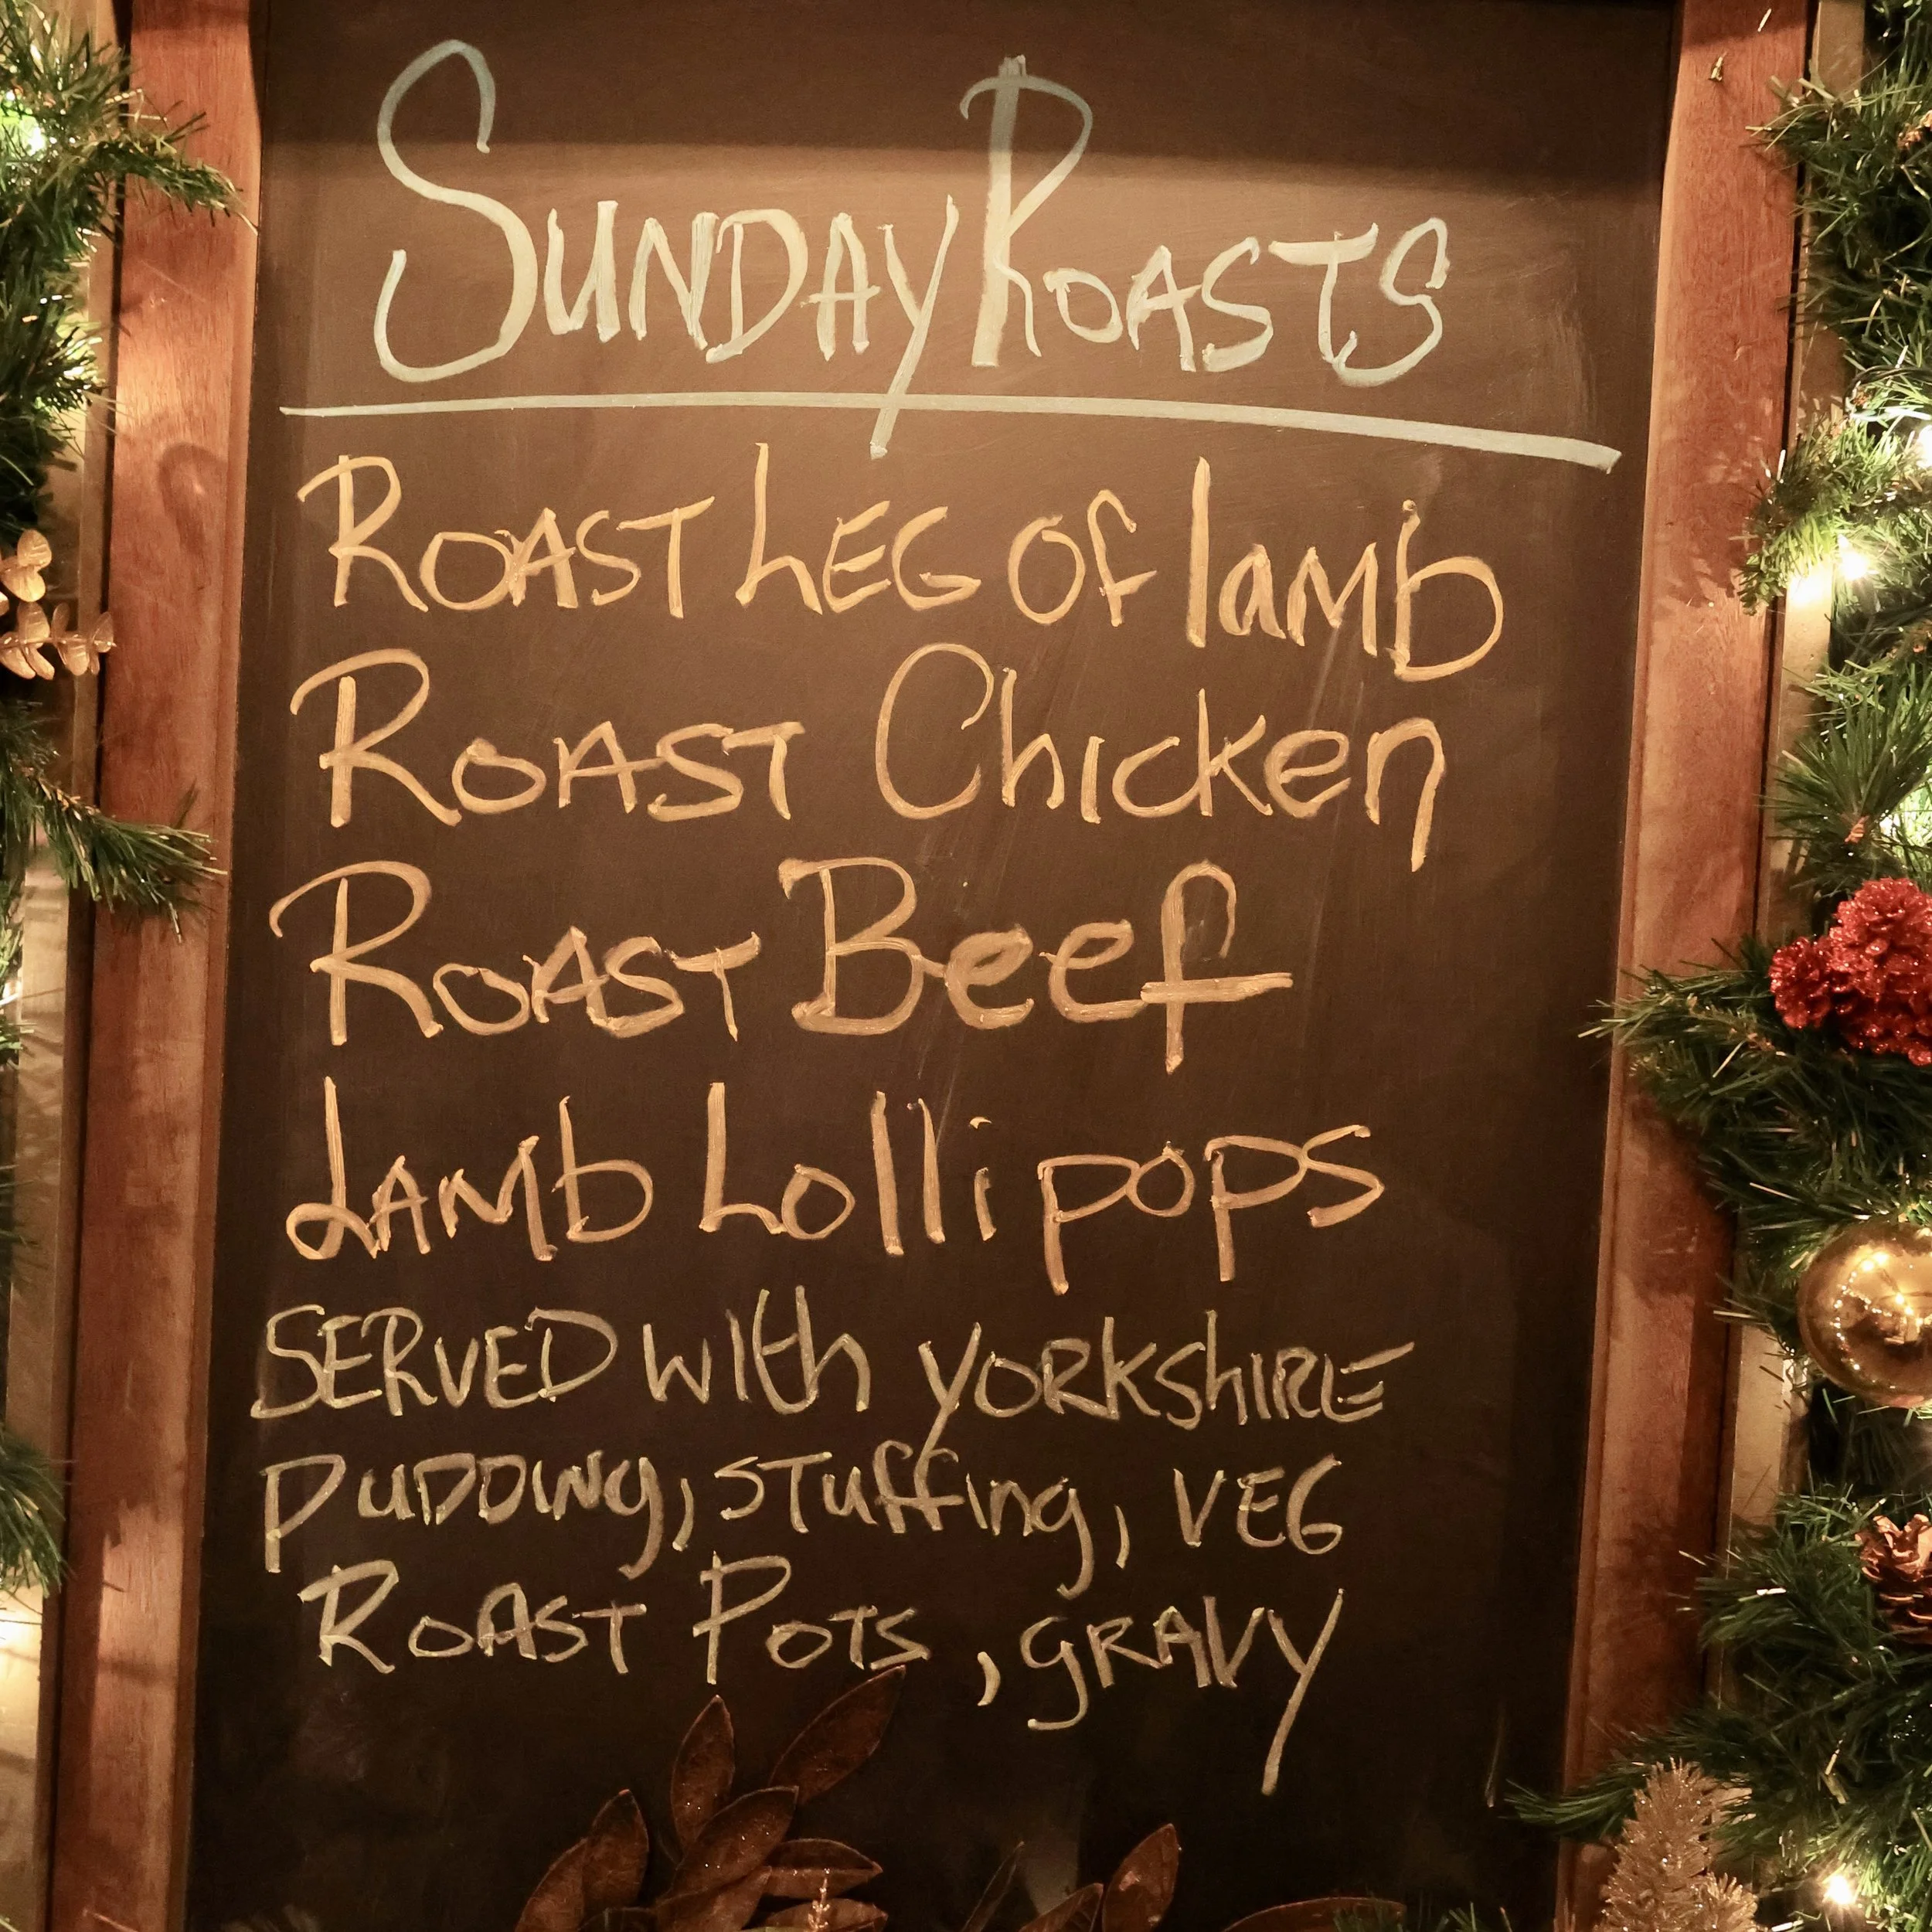 Sunday Roasts
Roast Leg of lamb
Roast Chicken
Roast Beef
Lamb Lollipops
Served with yorkshire
pudding, stuffing, veg
Roast Pots, gravy